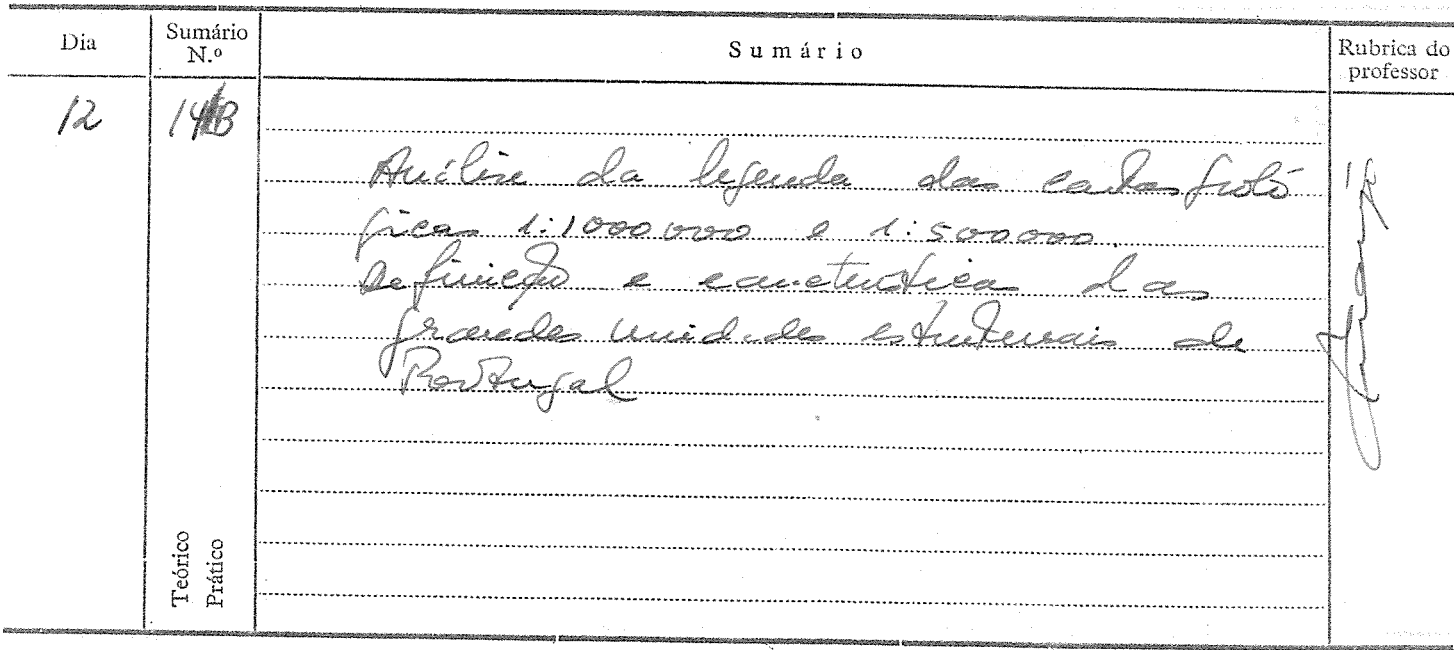 Dia
Sumário
N.º
Sumário
Rubrica do
professor
12
14 B
Análise da legenda das cartas geoló
gicas 1:1000000 e 1:500000.
Definição e características das
grandes unidades estruturais de
Portugal
Teórico
Prático